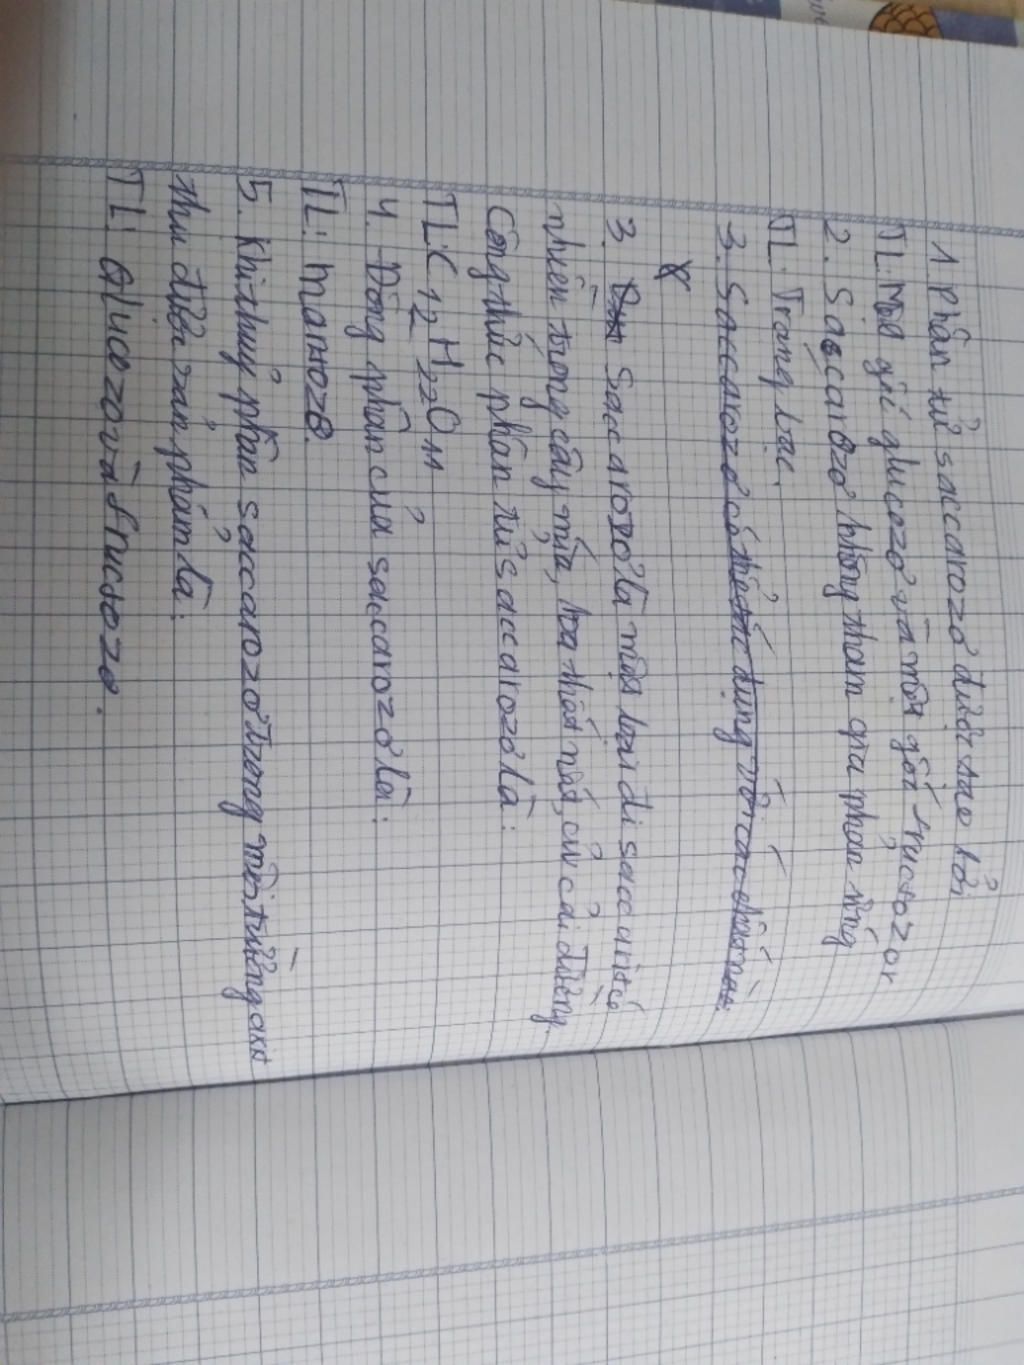 1. Phân tử saccarozơ được tạo bởi
TL: Một gốc glucozơ và một gốc fructozơ
2. Saccarozơ không tham gia phản ứng
TL: Tráng bạc.
3. Saccarozơ có thể tác dụng với các chất nào:
3. Saccarozơ là một loại disaccarit có
nhiều trong cây mía, hoa thốt nốt, củ cải đường
Công thức phân tử saccarozơ là:
TL: C12H22O11
4. Đồng phân của saccarozơ là:
TL: Mantozơ.
5. Khi thuỷ phân saccarozơ trong môi trường axit
thu được sản phẩm là:
TL: Glucozơ và fructozơ.